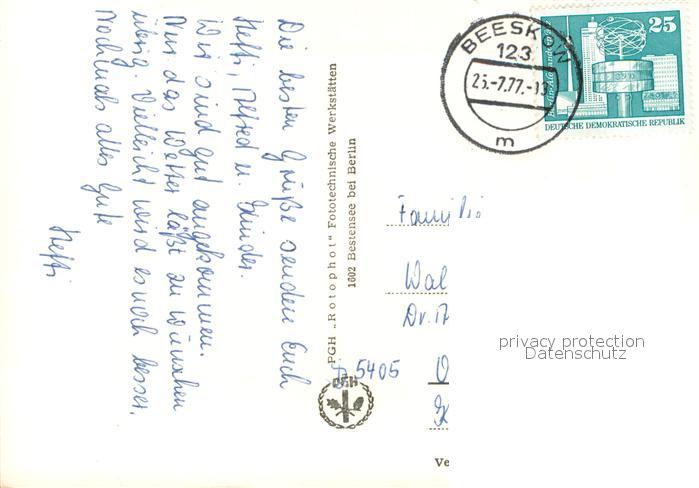 Die besten Grüße senden Euch
Steffi, Alfred u. Kinder.
Wir sind gut angekommen.
Nur das Wetter läßt zu wünschen
übrig. Vielleicht wird es noch besser.
Nochmals alles Gute
Steffi
PGH „Rotophot“ Fototechnische Werkstätten
1602 Bestensee bei Berlin
PGH
BEESKOW
123
25.-7.77.-
m
25
DEUTSCHE DEMOKRATISCHE REPUBLIK
Familie
Wal
Dr.
5405
Ve
privacy protection
Datenschutz